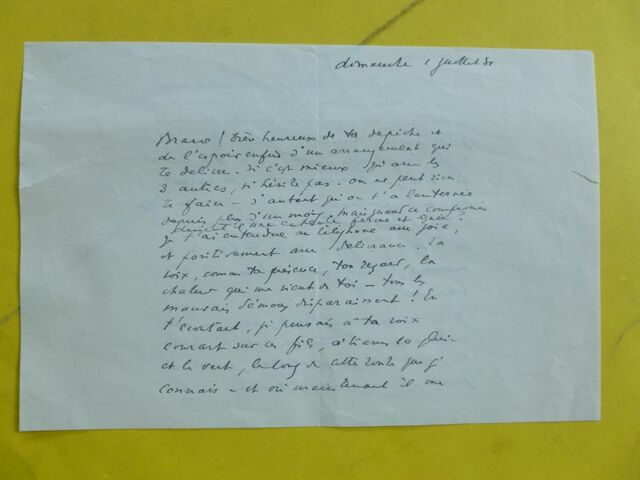 dimanche 1 juillet 51
Bravo ! Bien heureux de ta depêche et
de l'espoir enfin d'un arrangement qui
te délivre. Si c'est mieux qu'avec les
3 autres, n'hésite pas. On ne peut rien
te faire — d'autant qu'on t'a lanternée
depuis plus d'un mois, mais quand ce
une entente ferme et signée ?
Je t'ai entendue au téléphone avec joie,
et positivement avec délivrance. Ta
voix, comme ta présence, ton regard, la
chaleur qui me vient de toi — tous les
mauvais démons disparaissent ! En
t'écoutant, je pensais à ta voix
courant sur ces fils, à travers la pluie
et le vent, le long de cette route que je
connais — et où maintenant il me